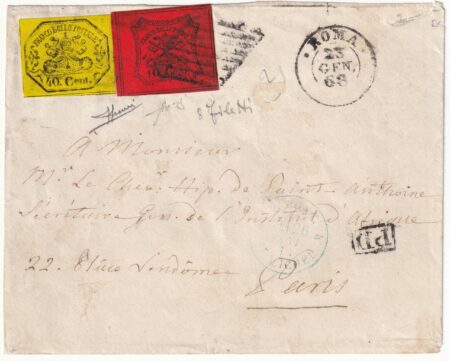 FRANCO BOLLO POSTALE
40 Cent.
10 Cent.
ROMA
23
GEN.
68
8 filetti
A Monsieur
Mr. Le Chev. Hip. de Saint-Anthoine
Sécrétaire Gen. de l'Institut d'Afrique
22. Place Vendôme
Paris
PD